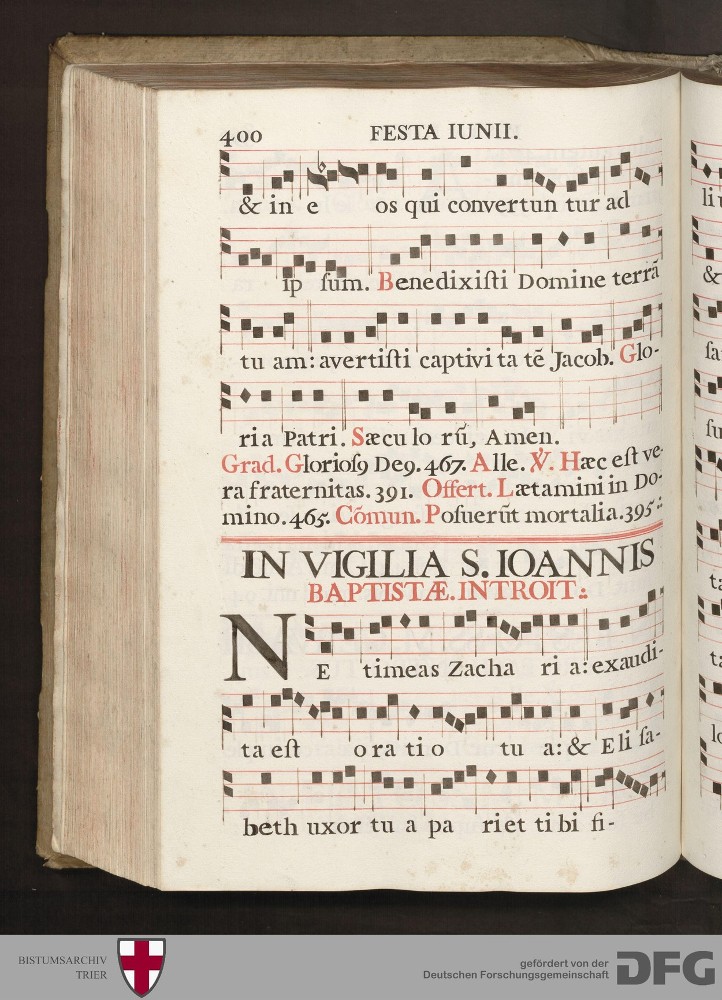 400 FESTA IUNII.
& in e os qui convertun tur ad
ip ſum. Benedixiſti Domine terrã
tu am: avertiſti captivi ta tẽ Jacob. Glo-
ria Patri. Sæcu lo rũ, Amen.
Grad. Glorioſꝯ Deꝯ. 467. Alle. ℣. Hæc eſt ve-
ra fraternitas. 391. Offert. Lætamini in Do-
mino. 465. Cõmun. Poſuerũt mortalia. 395.
IN VIGILIA S. IOANNIS
BAPTISTÆ. INTROIT.
NE timeas Zacha ri a: exaudi-
ta eſt o ra ti o tu a: & Eli ſa-
beth uxor tu a pa riet ti bi fi-
li
&
ſa
ſu
ta
ta
BISTUMSARCHIV
TRIER
gefördert von der
Deutschen Forschungsgemeinschaft
DFG